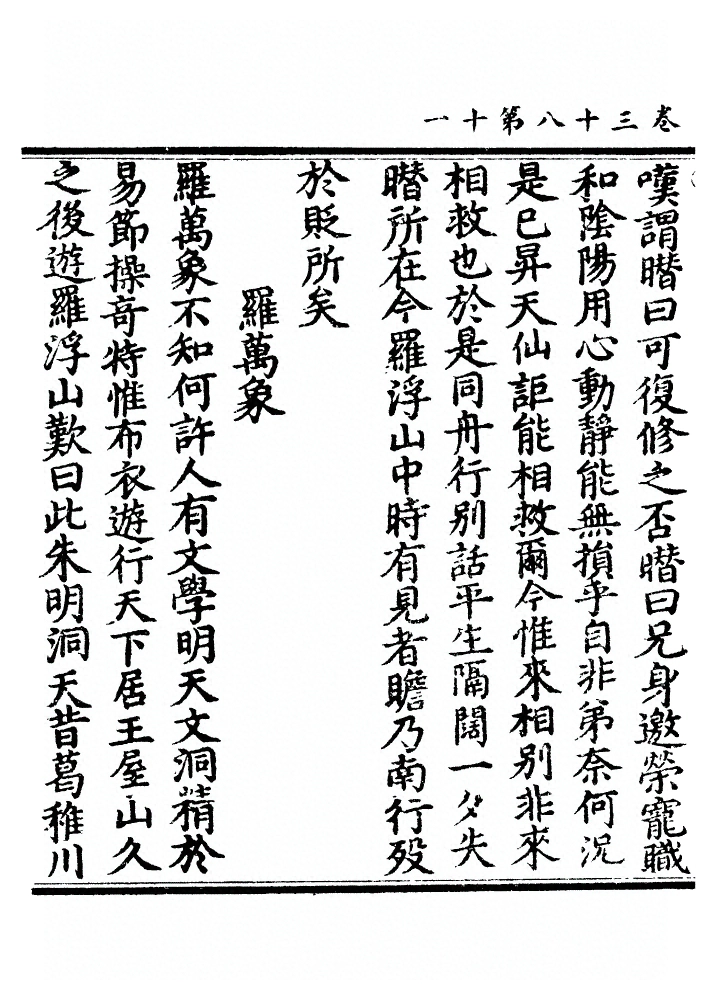 卷三十八第十一
嘆謂㬱曰可復修之否㬱曰兄身邀榮寵職
和陰陽用心動靜能無損乎自非弟奈何況
是已昇天仙詎能相救爾今惟來相別非來
相救也於是同舟行別話平生隔闊一夕失
㬱所在今羅浮山中時有見者瞻乃南行歿
於貶所矣
羅萬象
羅萬象不知何許人有文學明天文洞精於
易節操奇特惟布衣遊行天下居王屋山久
之後遊羅浮山歎曰此朱明洞天昔葛稚川